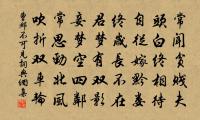 常聞貧賤夫
頭白終相待
自從嫁黔婁
終歲長不在
君夢有雙影
妾夢空四鄰
常思勁北風
吹折雙車輪
曹鄴不可見詞典網集